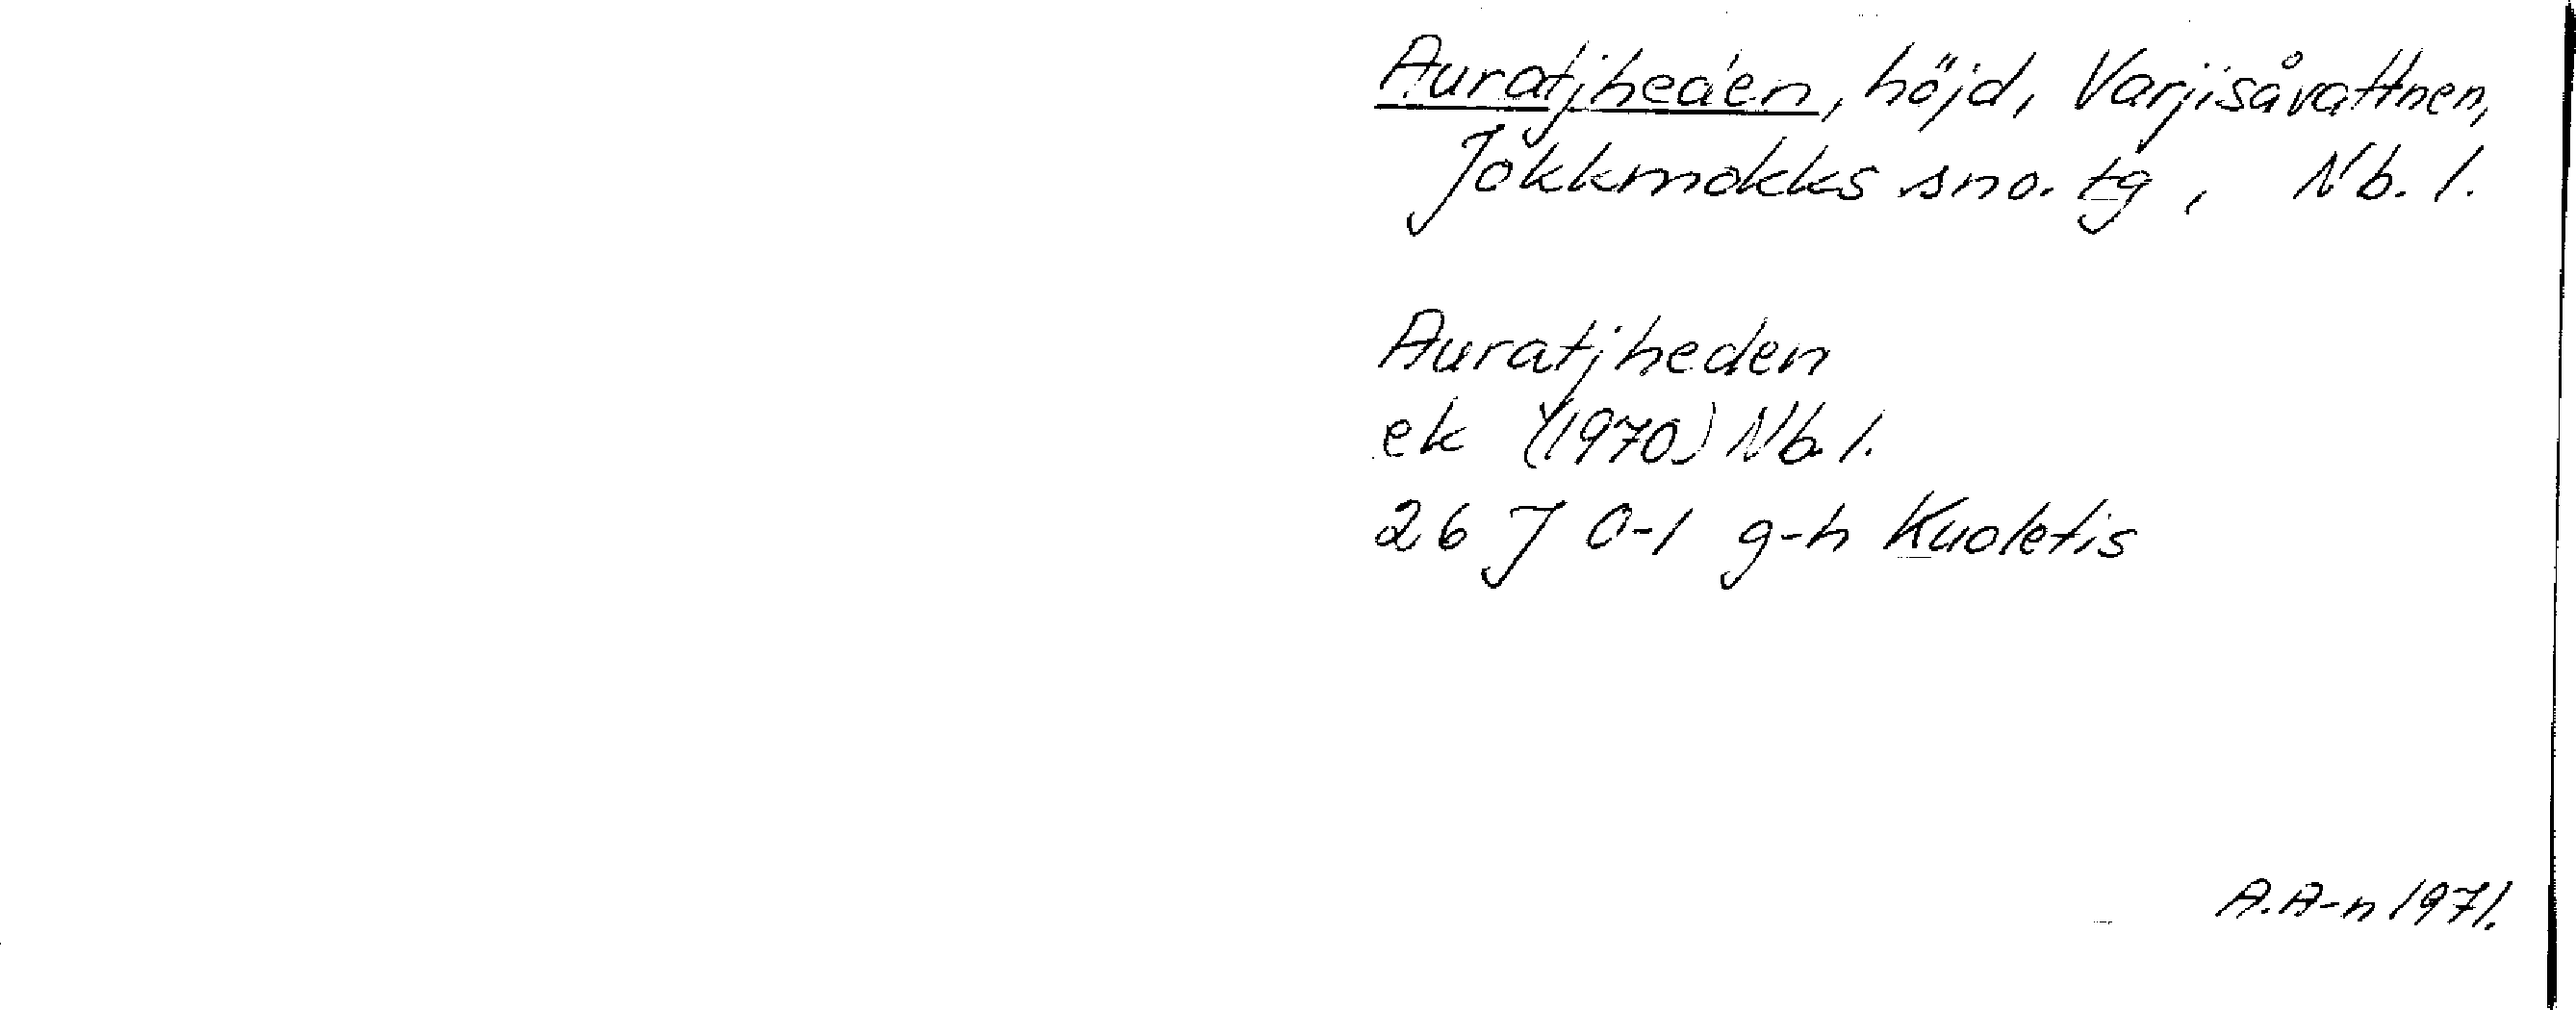 Auratjheden, höjd, Varjisåvattnen,
Jokkmokks sno. tg, Nb. l.
Auratjheden
ek (1970) Nb. l.
26 J 0-1 g-h Kuoletis
A.A-n 1971.